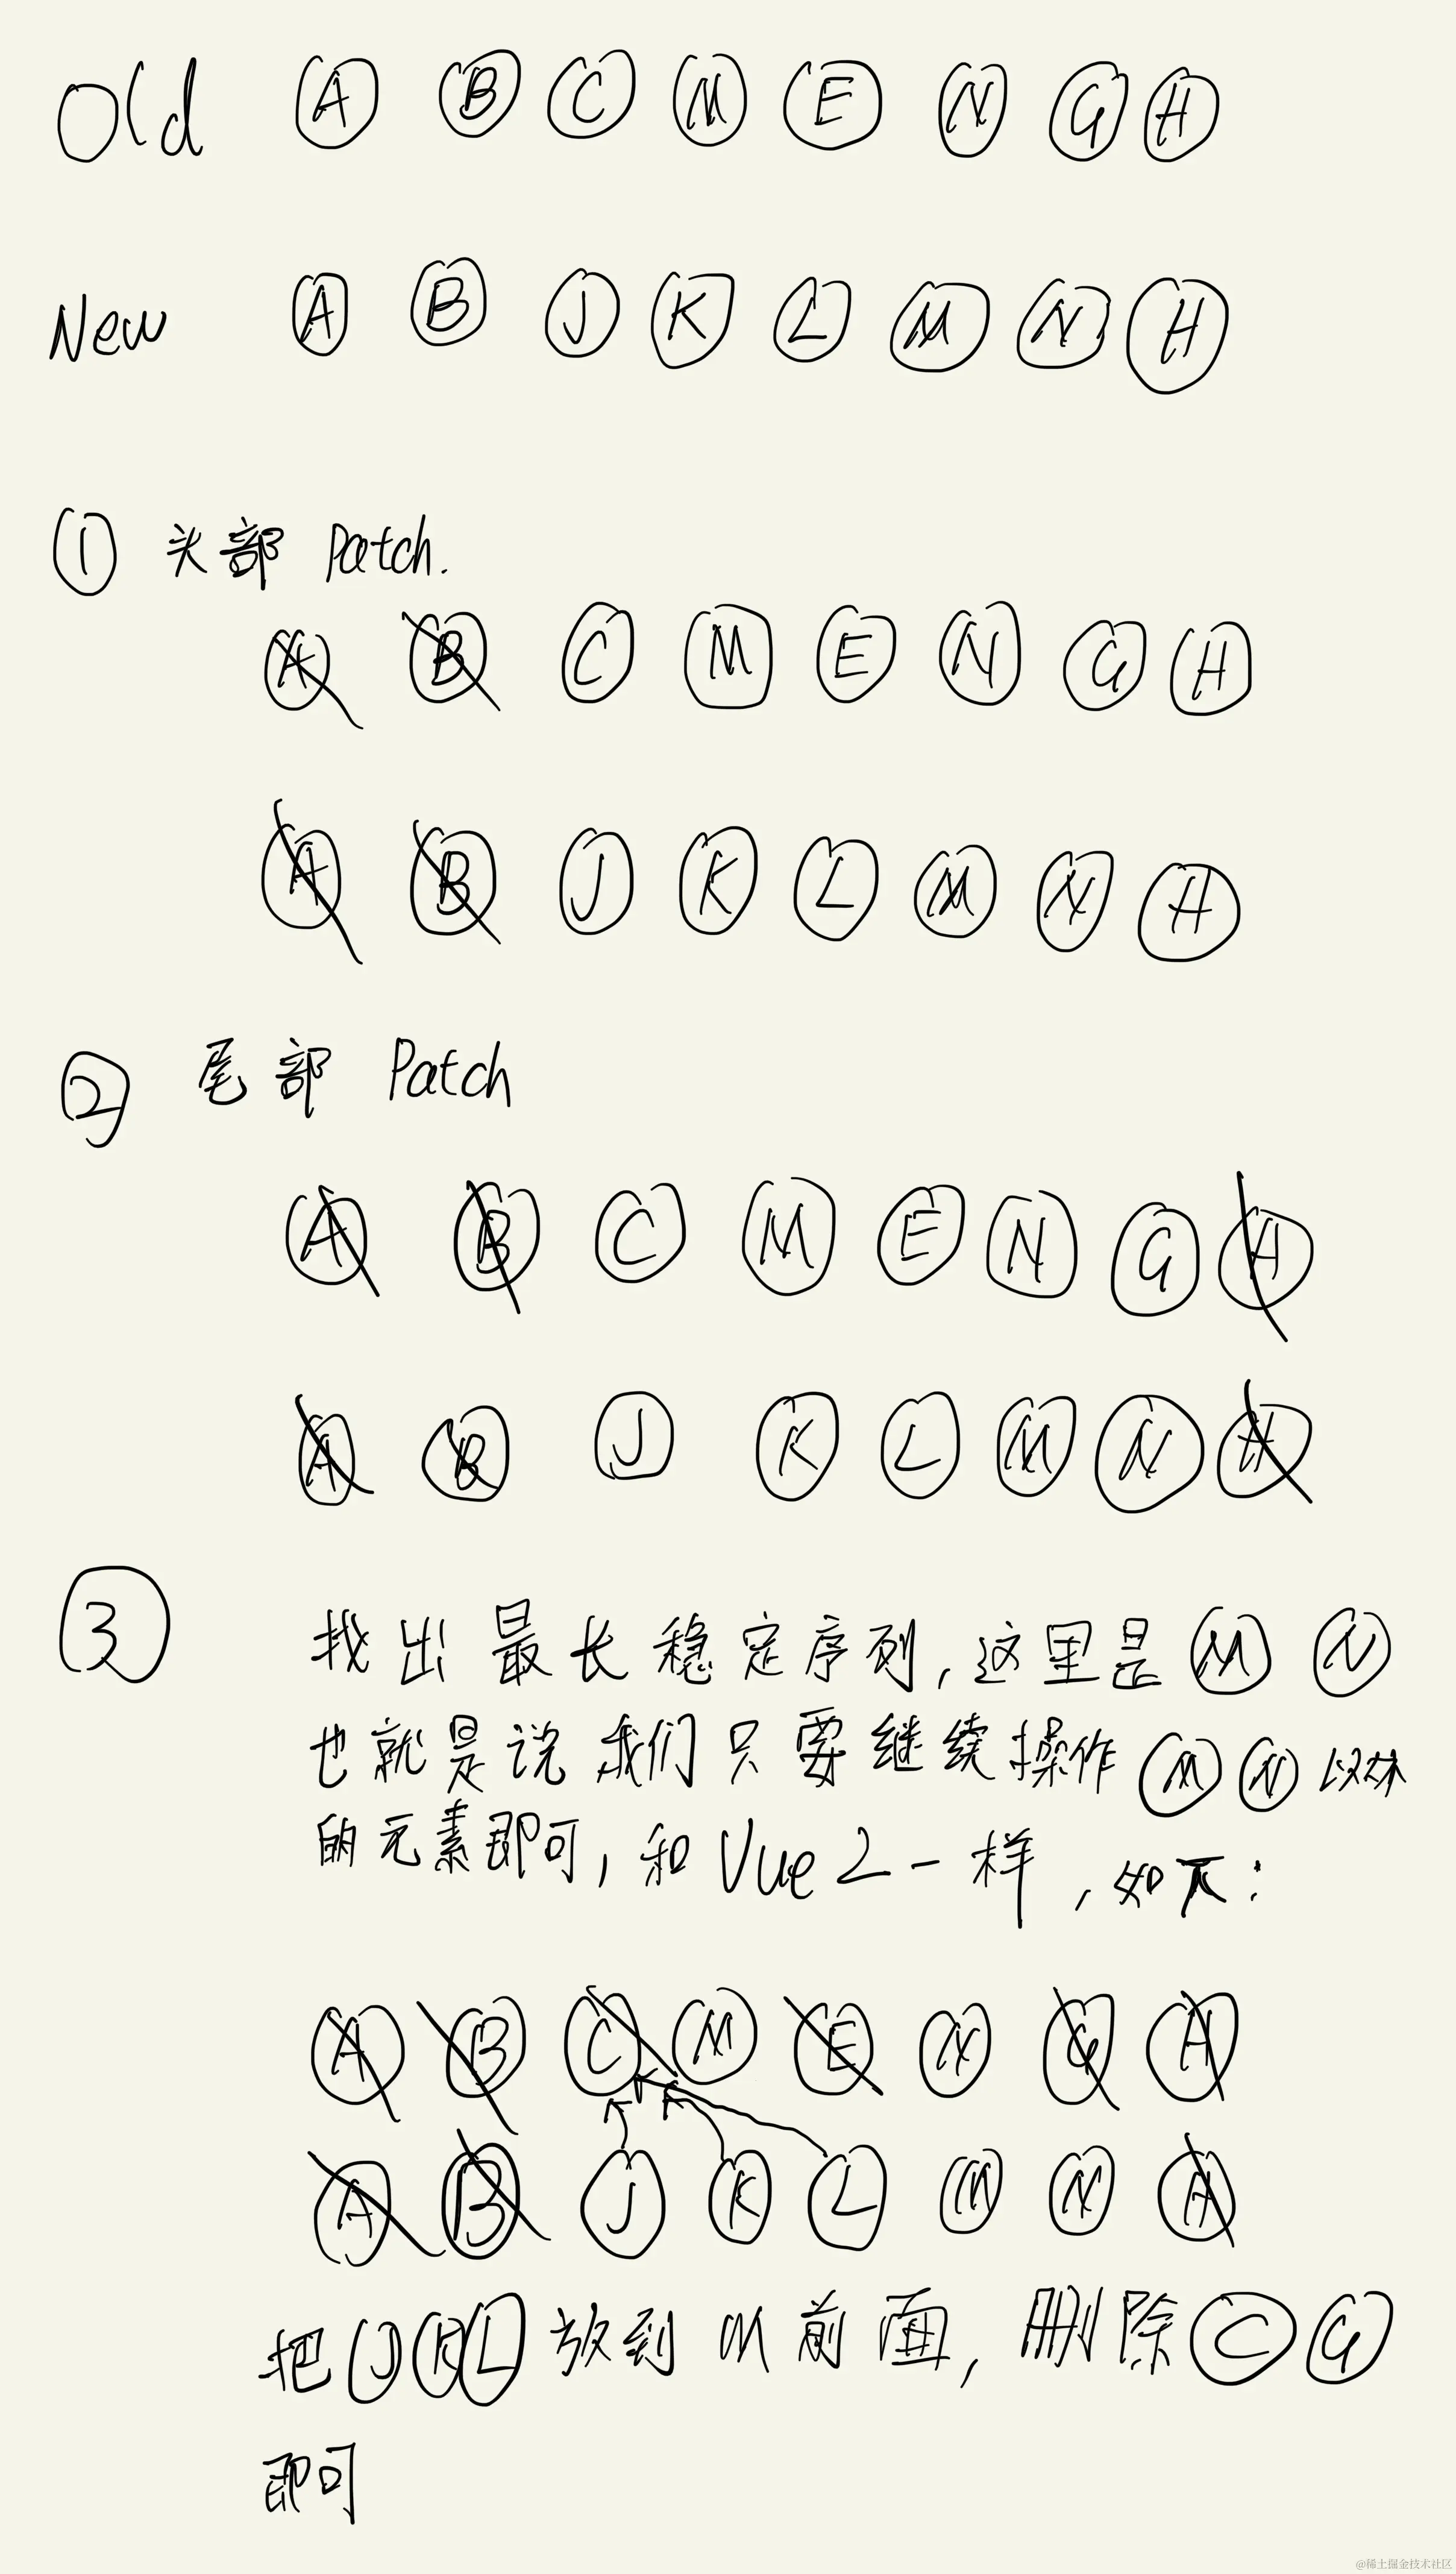 Old A B C M E N G H
New A B J K L M N H
① 头部 Patch.
A B C M E N G H
A B J K L M N H
② 尾部 Patch
A B C M E N G H
A B J K L M N H
③ 找出最长稳定序列,这里是 M N
也就是说我们只要继续操作 M N 以外
的元素即可,和Vue2一样,如下:
A B C M E N G H
A B J K L M N H
把 J K L 放到 M 前面,删除 C G
即可
@稀土掘金技术社区